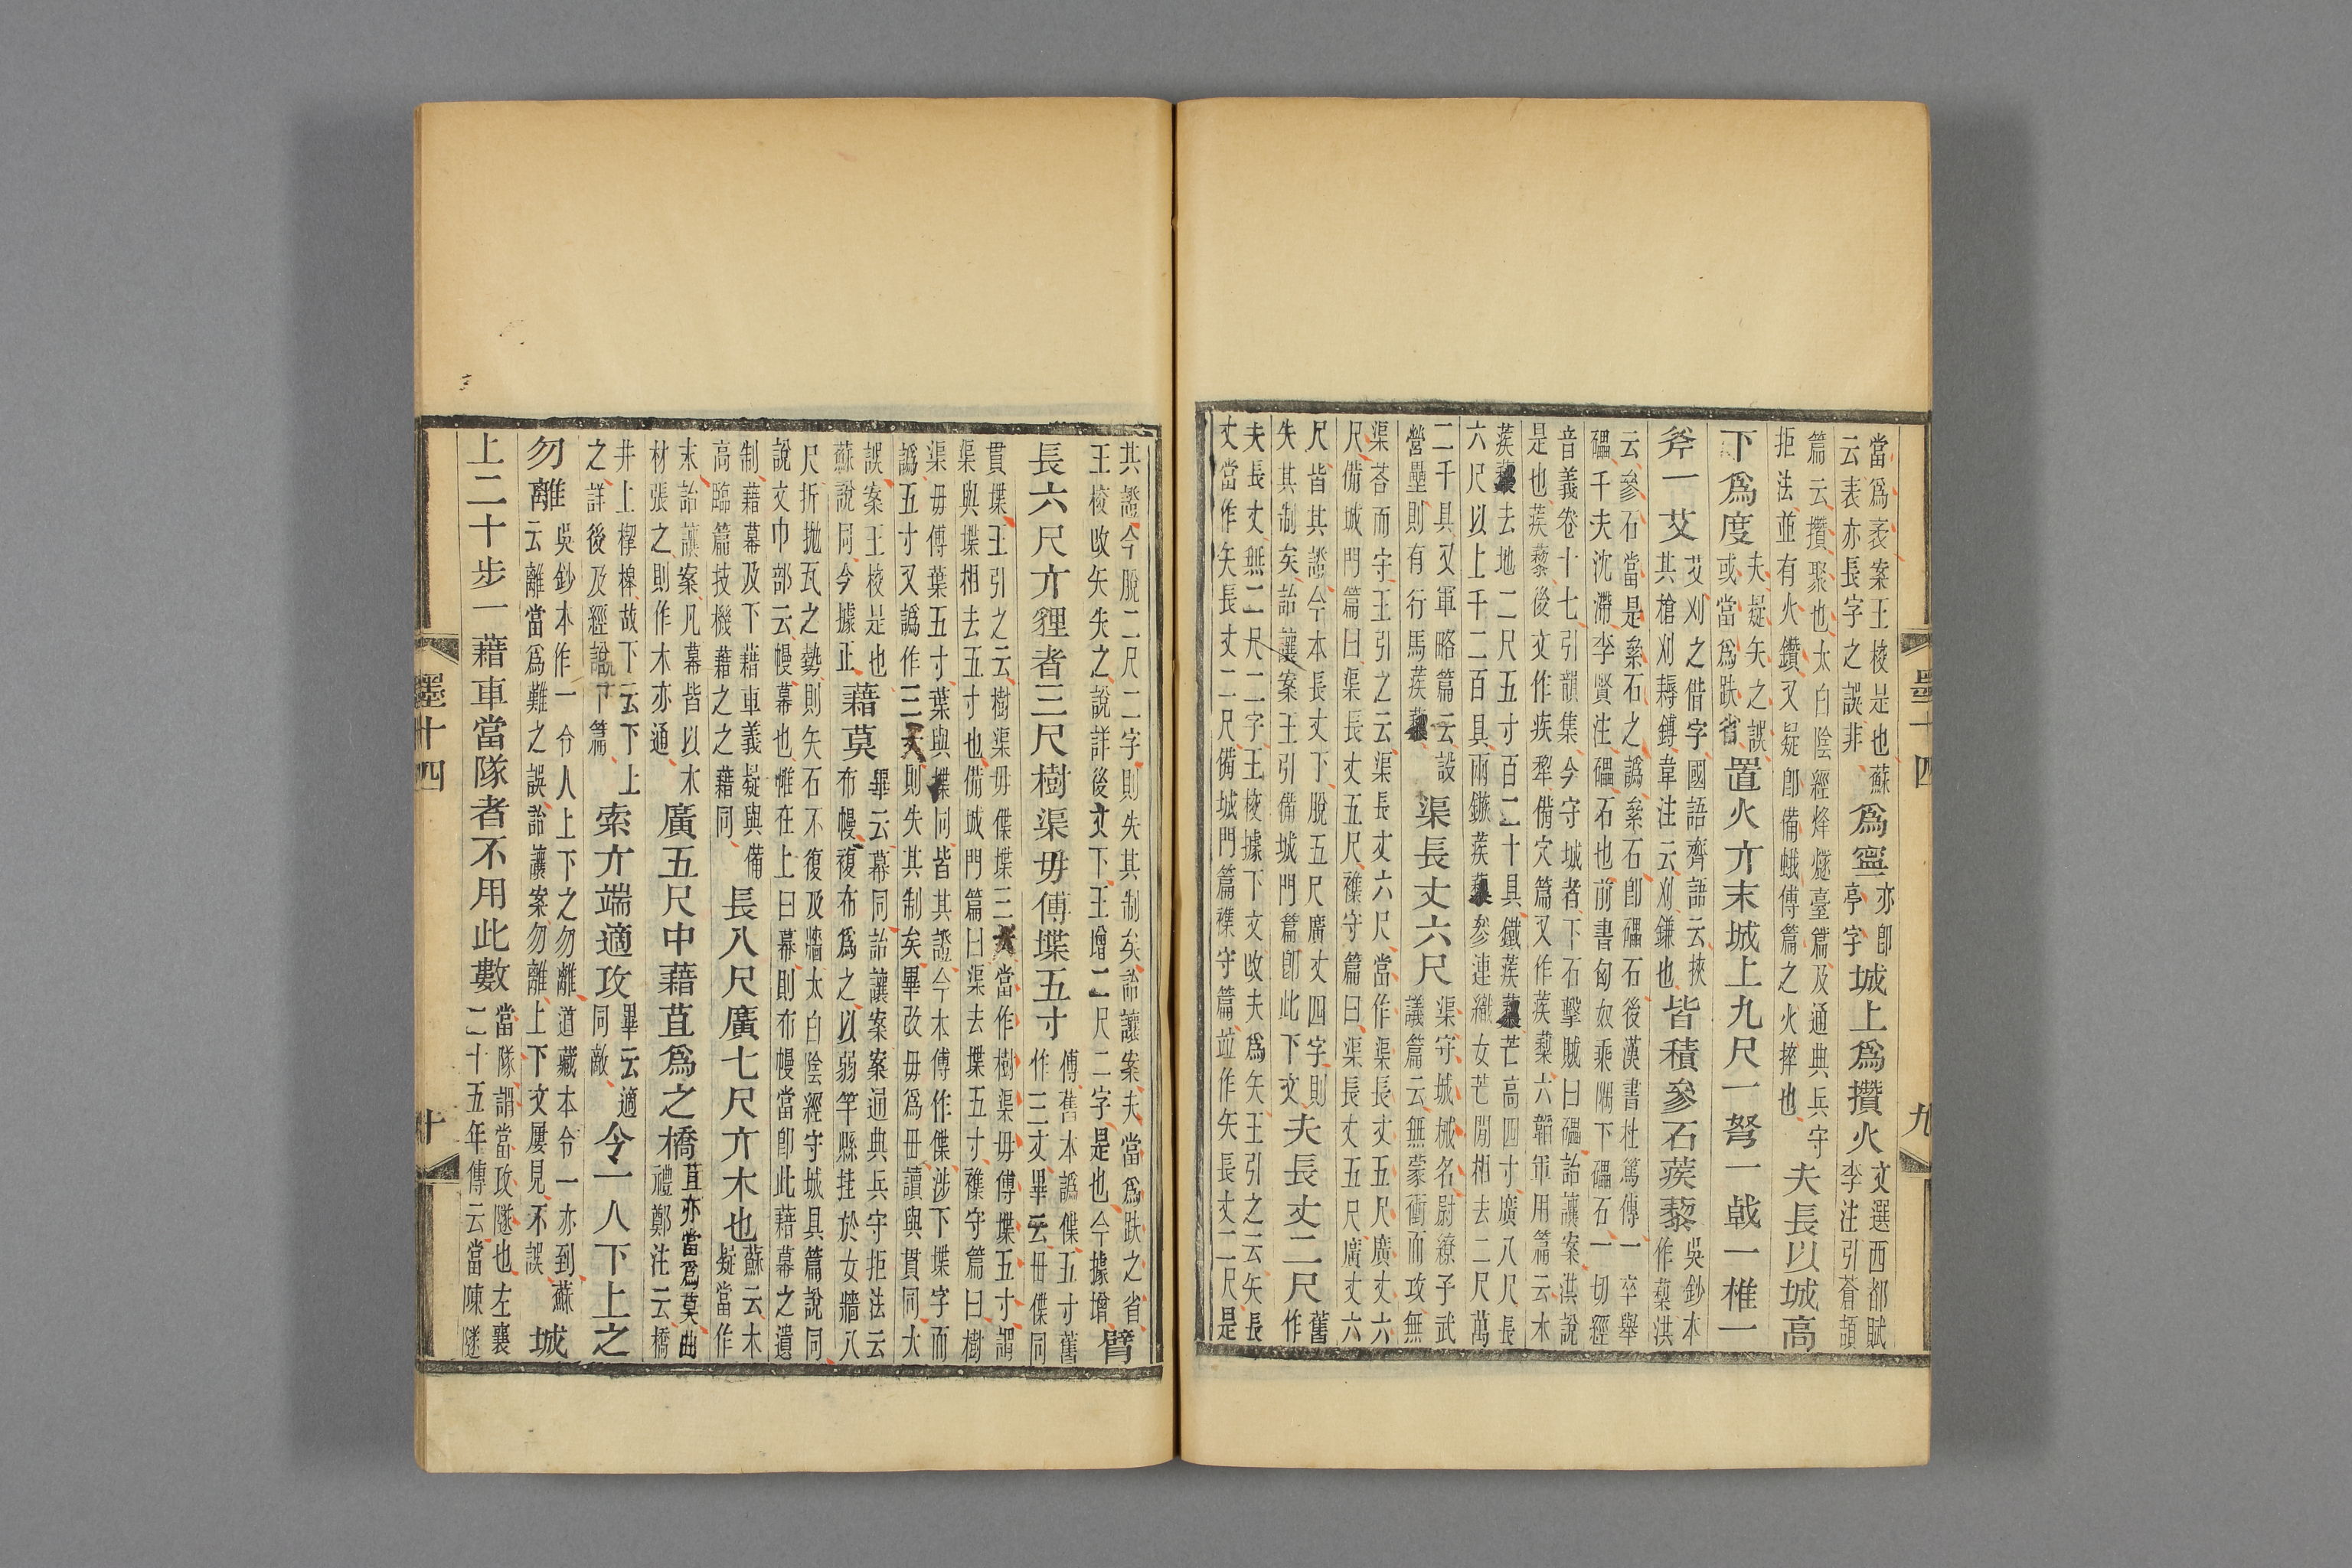 當爲袤案王校是也蘇
云表亦長字之誤非
爲寧
亦卽
亭字
城上爲攢火
文選西都賦
李注引蒼頡
篇云攢聚也太白陰經烽燧臺篇及通典兵守
拒法並有火鑽又疑卽備蛾傅篇之火捽也
夫長以城高
下爲度
夫疑矢之誤
或當爲趺省
置火亣末城上九尺一弩一戟一椎一
斧一艾
艾刈之借字國語齊語云挾
其槍刈耨鎛韋注云刈鎌也
皆積參石蒺藜
吳鈔本
作蔾洪
云參石當是絫石之譌絫石卽礧石後漢書杜篤傳一卒舉
礧千夫沈滯李賢注礧石也前書匈奴乘隅下礧石一切經
音義卷十七引韻集今守城者下石擊賊曰礧詒讓案洪說
是也蒺藜後文作疾犂備穴篇又作蒺藜六韜軍用篇云木
蒺藜去地二尺五寸百二十具鐵蒺藜芒高四寸廣八尺長
六尺以上千二百具兩鏃蒺藜參連織女芒閒相去二尺萬
二千具又軍略篇云設
營壘則有行馬蒺藜
渠長丈六尺
渠守城械名尉繚子武
議篇云無蒙衝而攻無
渠荅而守王引之云渠長丈六尺當作渠長丈五尺廣丈六
尺備城門篇曰渠長丈五尺襍守篇曰渠長丈五尺廣丈六
尺皆其證今本長丈下脫五尺廣丈四字則
失其制矣詒讓案王引備城門篇卽此下文
夫長丈二尺
舊
作
夫長丈無二尺二字王校據下文改夫爲矢王引之云矢長
丈當作矢長丈二尺備城門篇襍守篇竝作矢長丈二尺是
墨十四
九
其證今脫二尺二字則失其制矣詒讓案夫當爲趺之省
王校改矢失之說詳後文下王增二尺二字是也今據增
臂
長六尺亣貍者三尺樹渠毋傅堞五寸
傅舊本譌僷五寸舊
作三丈畢云毌僷同
貫堞王引之云樹渠毋僷堞三丈當作樹渠毋傅堞五寸謂
渠與堞相去五寸也備城門篇曰渠去堞五寸襍守篇曰樹
渠毋傅葉五寸葉與堞同皆其證今本傅作僷涉下堞字而
譌五寸又譌作三丈則失其制矣畢改毋爲毌讀與貫同大
誤案王校是也
蘇說同今據正
藉莫
畢云幕同詒讓案案通典兵守拒法云
布幔複布爲之以弱竿縣挂於女牆八
尺折拋瓦之勢則矢石不復及牆太白陰經守城具篇說同
說文巾部云幔幕也帷在上曰幕則布幔當卽此藉幕之遺
制藉幕及下藉車義疑與備
高臨篇技機藉之之藉同
長八尺廣七尺亣木也
蘇云木
疑當作
末詒讓案凡幕皆以木
材張之則作木亦通
廣五尺中藉苴爲之橋
苴亦當爲莫曲
禮鄭注云橋
井上樑槔故下云下上
之詳後及經說下篇
索亣端適攻
畢云適
同敵
令一人下上之
勿離
吳鈔本作一令人上下之勿離道藏本令一亦到蘇
云離當爲難之誤詒讓案勿離上下文屢見不誤
城
上二十步一藉車當隊者不用此數
當隊謂當攻隧也左襄
二十五年傳云當陳隧
墨十四
十